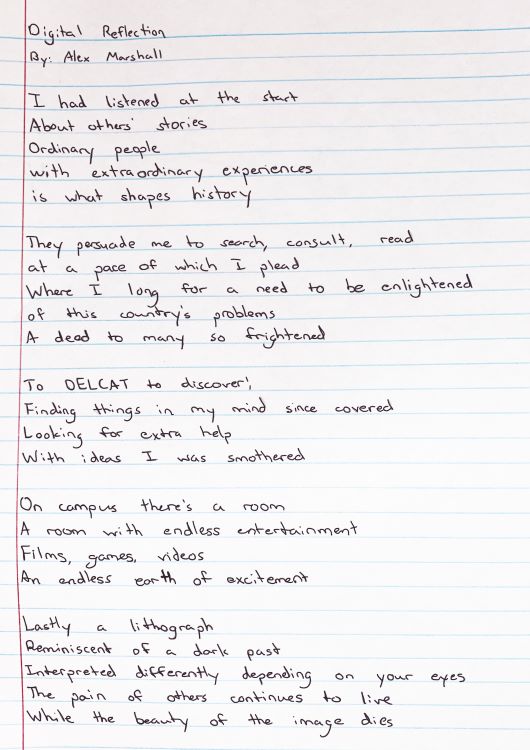 Digital Reflection
By: Alex Marshall
I had listened at the start
About others' stories
Ordinary people
with extraordinary experiences
is what shapes history
They persuade me to search, consult, read
at a pace of which I plead
Where I long for a need to be enlightened
of this country's problems
A deed to many so frightened
To DELCAT to discover',
Finding things in my mind since covered
Looking for extra help
With ideas I was smothered
On campus there's a room
A room with endless entertainment
Films, games, videos
An endless earth of excitement
Lastly a lithograph
Reminiscent of a dark past
Interpreted differently depending on your eyes
The pain of others continues to live
While the beauty of the image dies